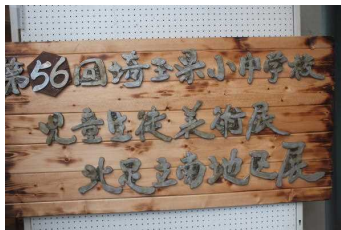 第56回埼玉県小中学校
児童生徒美術展
北足立南地区展